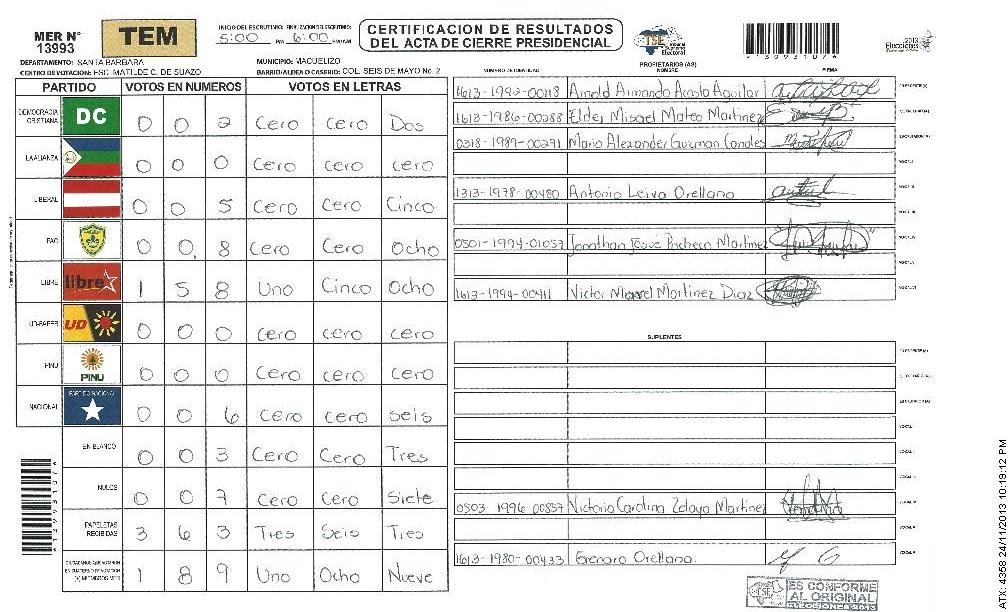 MER N°
13993
TEM
INICIO DEL ESCRUTINIO: FINALIZACION DEL ESCRUTINIO:
5:00 PM 6:00 PM/AM
CERTIFICACION DE RESULTADOS
DEL ACTA DE CIERRE PRESIDENCIAL
TSE Tribunal Supremo Electoral
2013
Elecciones
*13993107*
DEPARTAMENTO: SANTA BARBARA
MUNICIPIO: MACUELIZO
CENTRO DE VOTACION: ESC. MATILDE C. DE SUAZO
BARRIO/ALDEA O CASERIO: COL. SEIS DE MAYO No. 2
PROPIETARIOS (AS)
NUMERO DE IDENTIDAD NOMBRE FIRMA
PARTIDO VOTOS EN NUMEROS VOTOS EN LETRAS
DEMOCRACIA CRISTIANA DC 0 0 2 Cero Cero Dos
LA ALIANZA 0 0 0 Cero cero cero
LIBERAL 0 0 5 Cero Cero Cinco
PAC 0 0 8 Cero Cero Ocho
LIBRE libre 1 5 8 Uno Cinco Ocho
UD-FAPER UD 0 0 0 Cero cero cero
PINU PINU 0 0 0 Cero cero cero
NACIONAL PARTIDO NACIONAL 0 0 6 Cero cero seis
EN BLANCO 0 0 3 Cero Cero Tres
NULOS 0 0 7 Cero Cero Siete
PAPELETAS RECIBIDAS 3 6 3 Tres Seis Tres
1 8 9 Uno Ocho Nueve
1613-1992-00118 Arnold Armando Acosta Aguilar
1613-1986-00288 Elder Misael Mateo Martinez
0318-1989-00291 Mario Alexander Guzman Canales
1313-1978-00480 Antonio Leiva Orellana
0501-1994-01057 Jonathan Josue Pacheco Martinez
1613-1994-00411 Victor Manuel Martinez Diaz
SUPLENTES
0503-1996-00857 Victoria Carolina Zelaya Martinez
1613-1980-00433 Genaro Orellana.
TSE
ES CONFORME
AL ORIGINAL
ELECCIONES 2013
*13993107*
ATX- 4358 24/11/2013 10:19:12 PM